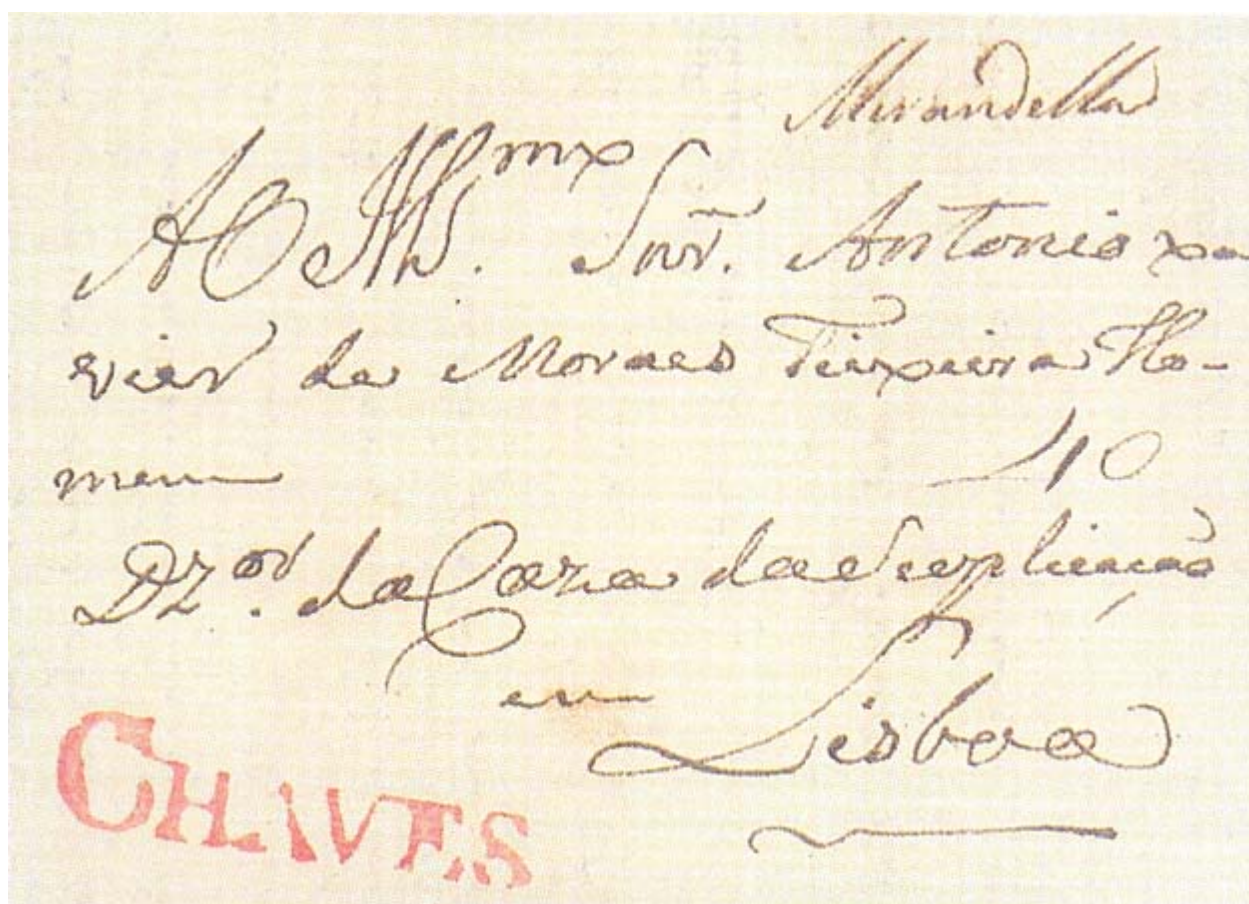 Mirandella
AO Ill.mo Snr. Antonio Xa
vier de Moraes Teixeira Ho-
mem
40
Dzor. da Caza da Suplicação
em
Lisboa
CHAVES